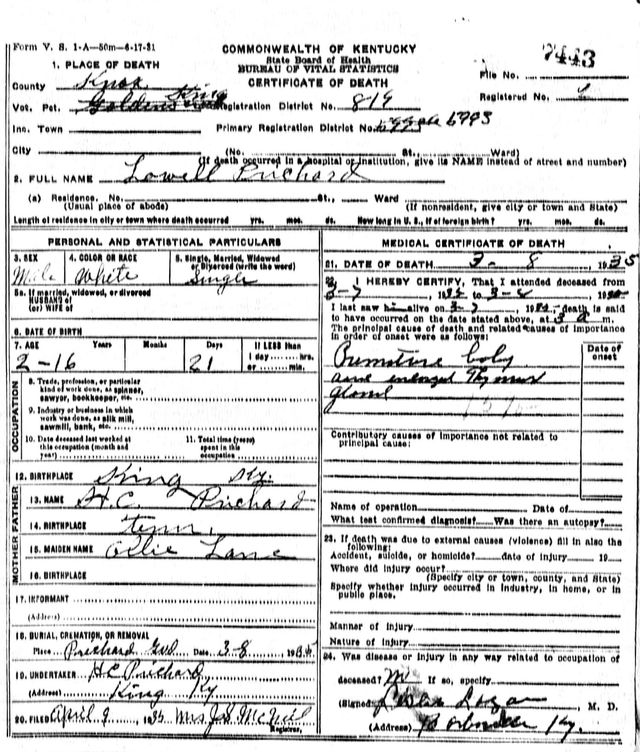 Form V. S. 1-A—50m—6-17-31
COMMONWEALTH OF KENTUCKY
State Board of Health
BUREAU OF VITAL STATISTICS
CERTIFICATE OF DEATH
7443
File No.
Registered No.
1. PLACE OF DEATH
County Knox
Vot. Pct. King Registration District No. 819
Inc. Town Primary Registration District No. 6993
City (No. St., Ward)
(If death occurred in a hospital or institution, give its NAME instead of street and number)
2. FULL NAME Lowell Prichard
(a) Residence. No. St., Ward
(Usual place of abode) (If nonresident, give city or town and State)
Length of residence in city or town where death occurred yrs. mos. ds. How long in U. S., if of foreign birth? yrs. mos. ds.
PERSONAL AND STATISTICAL PARTICULARS
3. SEX Male
4. COLOR OR RACE White
5. Single, Married, Widowed or Divorced (write the word) Single
5a. If married, widowed, or divorced
HUSBAND of
(or) WIFE of
6. DATE OF BIRTH
7. AGE Years Months Days If LESS than
2-16 21 1 day hrs.
or min.
OCCUPATION
8. Trade, profession, or particular
kind of work done, as spinner,
sawyer, bookkeeper, etc.
9. Industry or business in which
work was done, as silk mill,
sawmill, bank, etc.
10. Date deceased last worked at
this occupation (month and
year)
11. Total time (years)
spent in this
occupation
12. BIRTHPLACE King Ky.
FATHER
13. NAME H.C. Prichard
14. BIRTHPLACE Tenn.
MOTHER
15. MAIDEN NAME Ollie Lane
16. BIRTHPLACE
17. INFORMANT
(Address)
18. BURIAL, CREMATION, OR REMOVAL
Place Prichard Gvd Date 3-8 1935
19. UNDERTAKER H.C. Prichard
(Address) King Ky
20. FILED April 9 1935 Mrs J.S. McNeil
Registrar.
MEDICAL CERTIFICATE OF DEATH
21. DATE OF DEATH 3-8 1935
22. I HEREBY CERTIFY, That I attended deceased from
3-7, 1935 to
I last saw him alive on 3-7 death is said
to have occurred on the date stated above, at 3 a m.
The principal cause of death and related causes of importance
in order of onset were as follows:
Date of
onset
Premature baby
and enlarged Thymus
gland
Contributory causes of importance not related to
principal cause:
Name of operation Date of
What test confirmed diagnosis? Was there an autopsy?
23. If death was due to external causes (violence) fill in also the
following:
Accident, suicide, or homicide? date of injury 19
Where did injury occur?
(Specify city or town, county, and State)
Specify whether injury occurred in industry, in home, or in
public place.
Manner of injury
Nature of injury
24. Was disease or injury in any way related to occupation of
deceased? No If so, specify
(Signed) Logan M. D.
(Address) Barbourville Ky.